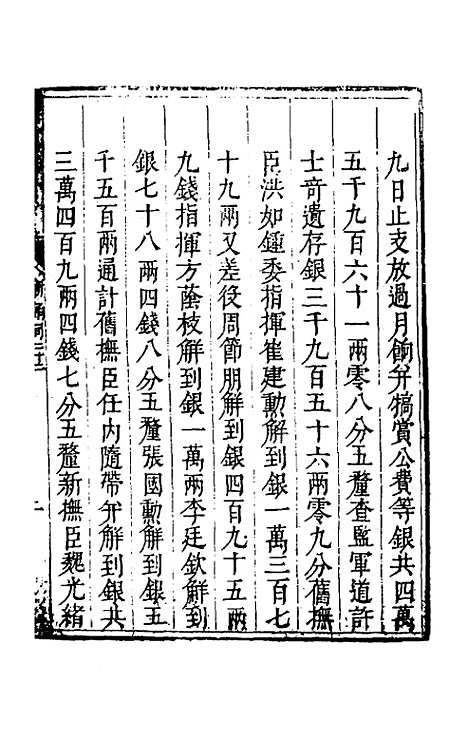 九日止支放過月餉并犒賞公費等銀共四萬
五千九百六十一兩零八分五釐查監軍道許
士奇遺存銀三千九百五十六兩零九分舊撫
臣洪如鍾委指揮崔建勳解到銀一萬三百七
十九兩又差役周節朋解到銀四百九十五兩
九錢指揮方蔭枝解到銀一萬兩李廷欽解到
銀七十八兩四錢八分五釐張國勳解到銀五
千五百兩通計舊撫臣任內隨帶并解到銀共
三萬四百九兩四錢七分五釐新撫臣魏光緒